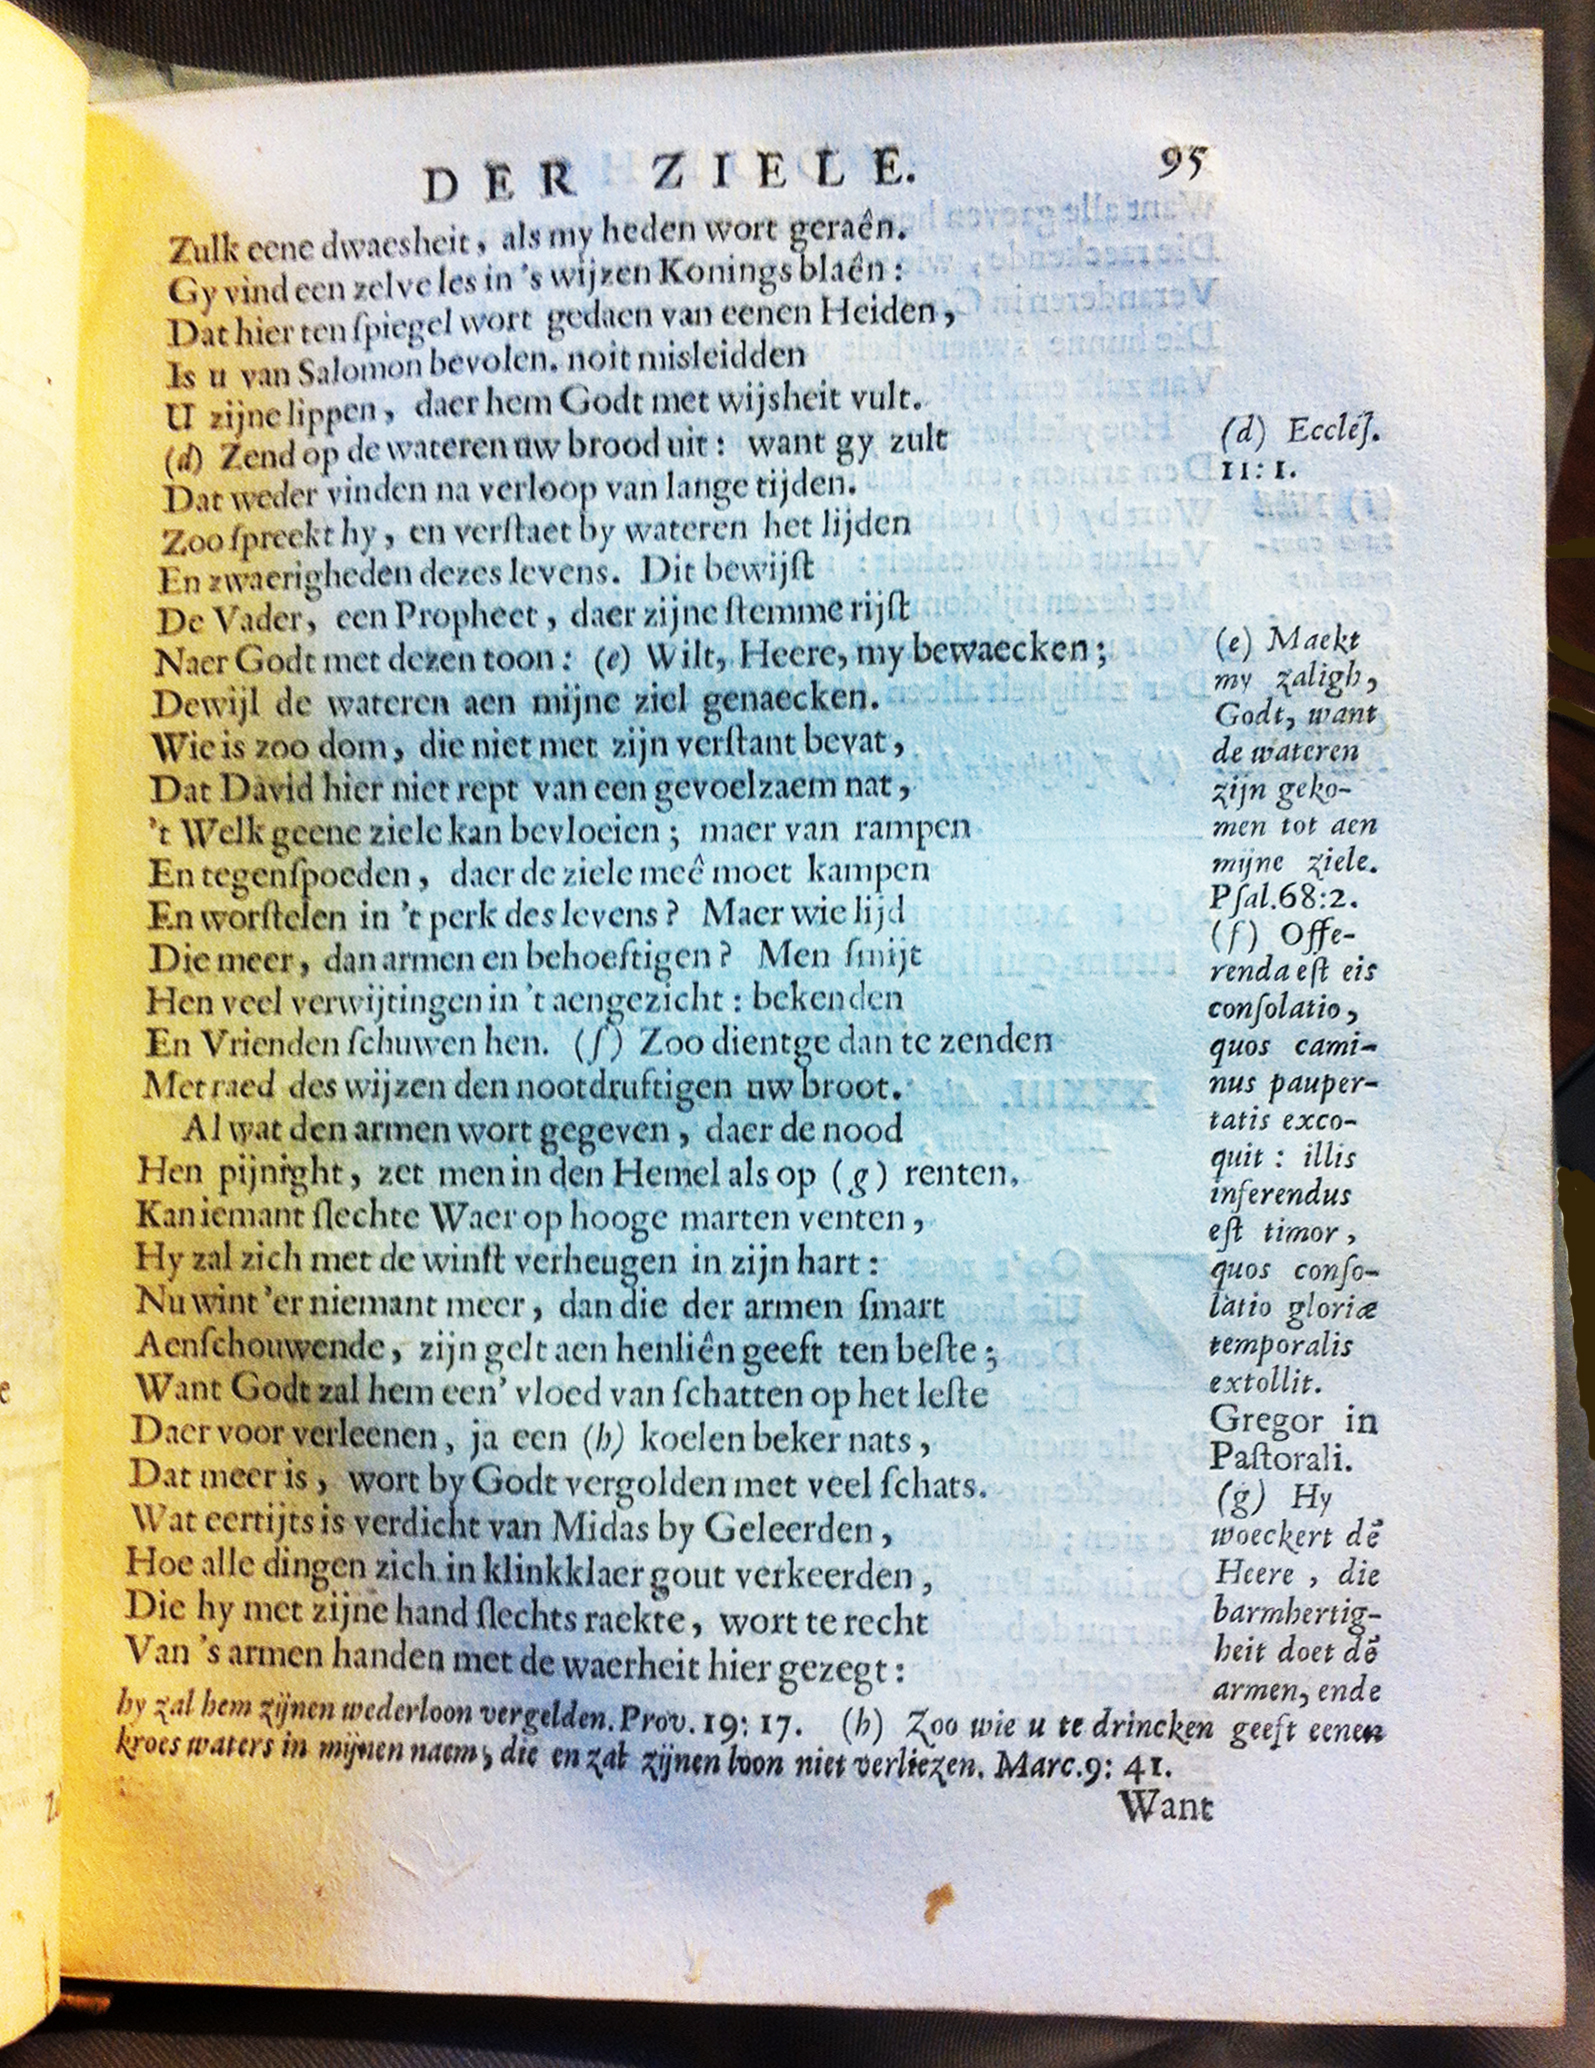 DER ZIELE. 95
Zulk eene dwaesheit, als my heden wort geraên.
Gy vind een zelve les in 's wijzen Konings blaên:
Dat hier ten ſpiegel wort gedaen van eenen Heiden,
Is u van Salomon bevolen. noit misleidden
U zijne lippen, daer hem Godt met wijsheit vult.
(d) Zend op de wateren uw brood uit: want gy zult
Dat weder vinden na verloop van lange tijden.
Zoo ſpreekt hy, en verſtaet by wateren het lijden
En zwaerigheden dezes levens. Dit bewijſt
De Vader, een Propheet, daer zijne ſtemme rijſt
Naer Godt met dezen toon: (e) Wilt, Heere, my bewaecken;
Dewijl de wateren aen mijne ziel genaecken.
Wie is zoo dom, die niet met zijn verſtant bevat,
Dat David hier niet rept van een gevoelzaem nat,
't Welk geene ziele kan bevloeien; maer van rampen
En tegenſpoeden, daer de ziele meê moet kampen
En worſtelen in 't perk des levens? Maer wie lijd
Die meer, dan armen en behoeftigen? Men ſmijt
Hen veel verwijtingen in 't aengezicht: bekenden
En Vrienden ſchuwen hen. (f) Zoo dientge dan te zenden
Met raed des wijzen den nootdruftigen uw broot.
Al wat den armen wort gegeven, daer de nood
Hen pijnight, zet men in den Hemel als op (g) renten.
Kan iemant ſlechte Waer op hooge marten venten,
Hy zal zich met de winſt verheugen in zijn hart:
Nu wint 'er niemant meer, dan die der armen ſmart
Aenſchouwende, zijn gelt aen henliên geeft ten beſte;
Want Godt zal hem een' vloed van ſchatten op het leſte
Daer voor verleenen, ja een (h) koelen beker nats,
Dat meer is, wort by Godt vergolden met veel ſchats.
Wat eertijts is verdicht van Midas by Geleerden,
Hoe alle dingen zich in klinkklaer gout verkeerden,
Die hy met zijne hand ſlechts raekte, wort te recht
Van 's armen handen met de waerheit hier gezegt:
(d) Eccleſ.
11: 1.
(e) Maekt
my zaligh,
Godt, want
de wateren
zijn geko-
men tot aen
mijne ziele.
Pſal. 68:2.
(f) Offe-
renda eſt eis
conſolatio,
quos cami-
nus pauper-
tatis exco-
quit: illis
inferendus
eſt timor,
quos conſo-
latio gloriæ
temporalis
extollit.
Gregor in
Paſtorali.
(g) Hy
woeckert dē
Heere, die
barmhertig-
heit doet dē
armen, ende
hy zal hem zijnen wederloon vergelden. Prov. 19: 17. (h) Zoo wie u te drincken geeft eenen
kroes waters in mijnen naem, die en zal zijnen loon niet verliezen. Marc. 9: 41.
Want